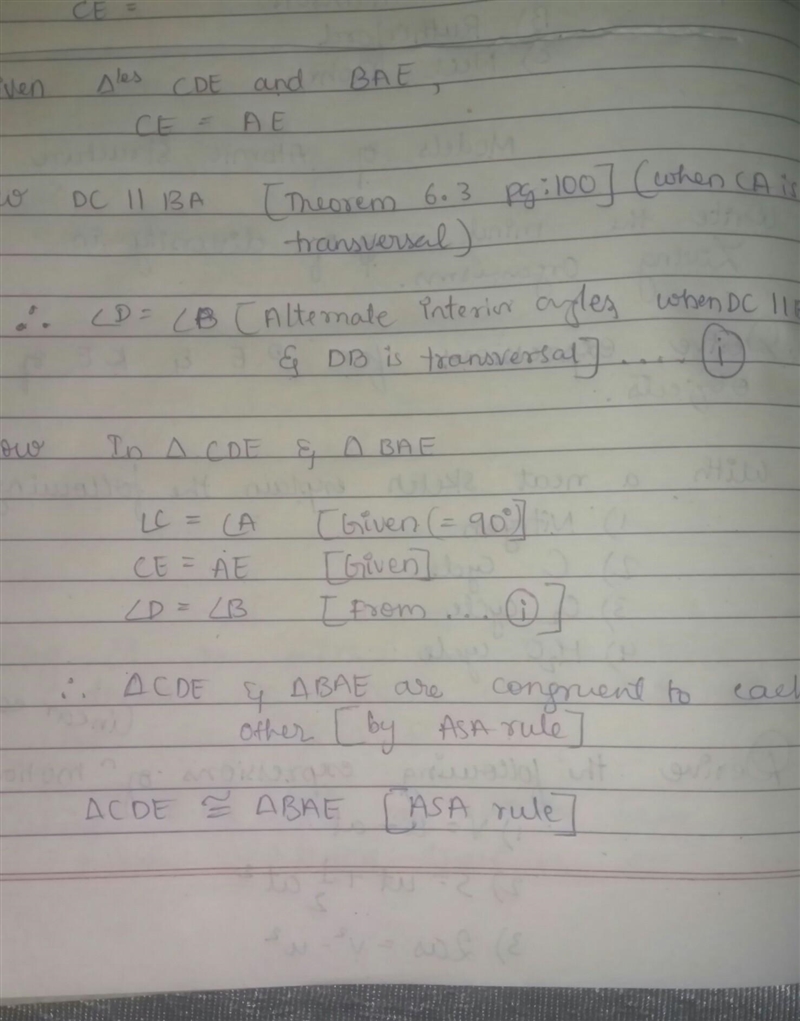 CE =
iven Δles CDE and BAE,
CE = AE
w DC || BA [Theorem 6.3 pg:100] (when CA is
transversal)
∴ ∠D = ∠B [Alternate interior agles when DC ||
& DB is transversal] .... (i)
ow In Δ CDE & Δ BAE
∠C = ∠A [Given (= 90°)]
CE = AE [Given]
∠D = ∠B [from ... (i)]
∴ ΔCDE & ΔBAE are congruent to each
other [by ASA rule]
ΔCDE ≅ ΔBAE [ASA rule]